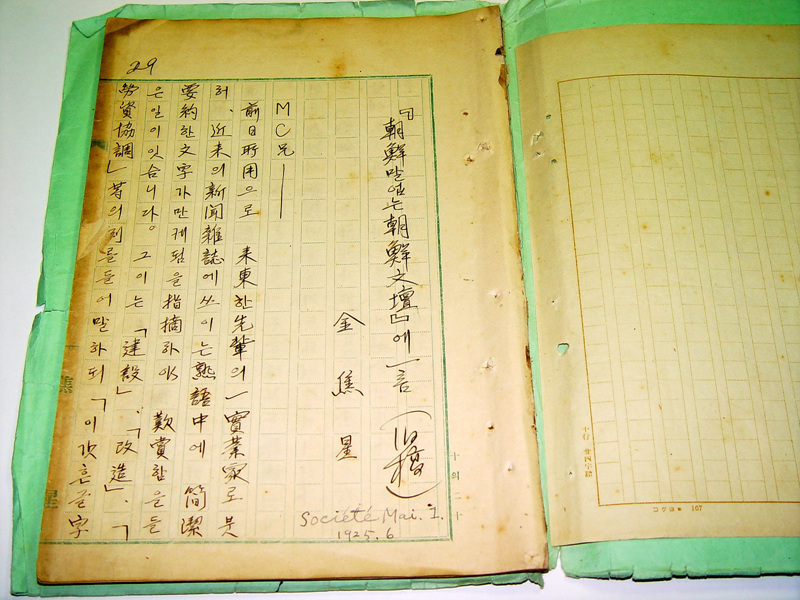 29
『朝鮮말업는朝鮮文壇』에一言 (旧稿)
金焦星
MC兄——
前日所用으로 来東한先輩의一實業家로붓
허、近来의新聞雜誌에쓰이는熟語中에 簡潔
要約한文字가만케됨을指摘하야 歎賞함을들
은일이잇슴니다。 그이는「建設」、「改造」、「
勞資協調」等의例를들어말하되「이갓흔글字
Société Mai. I.
1925. 6